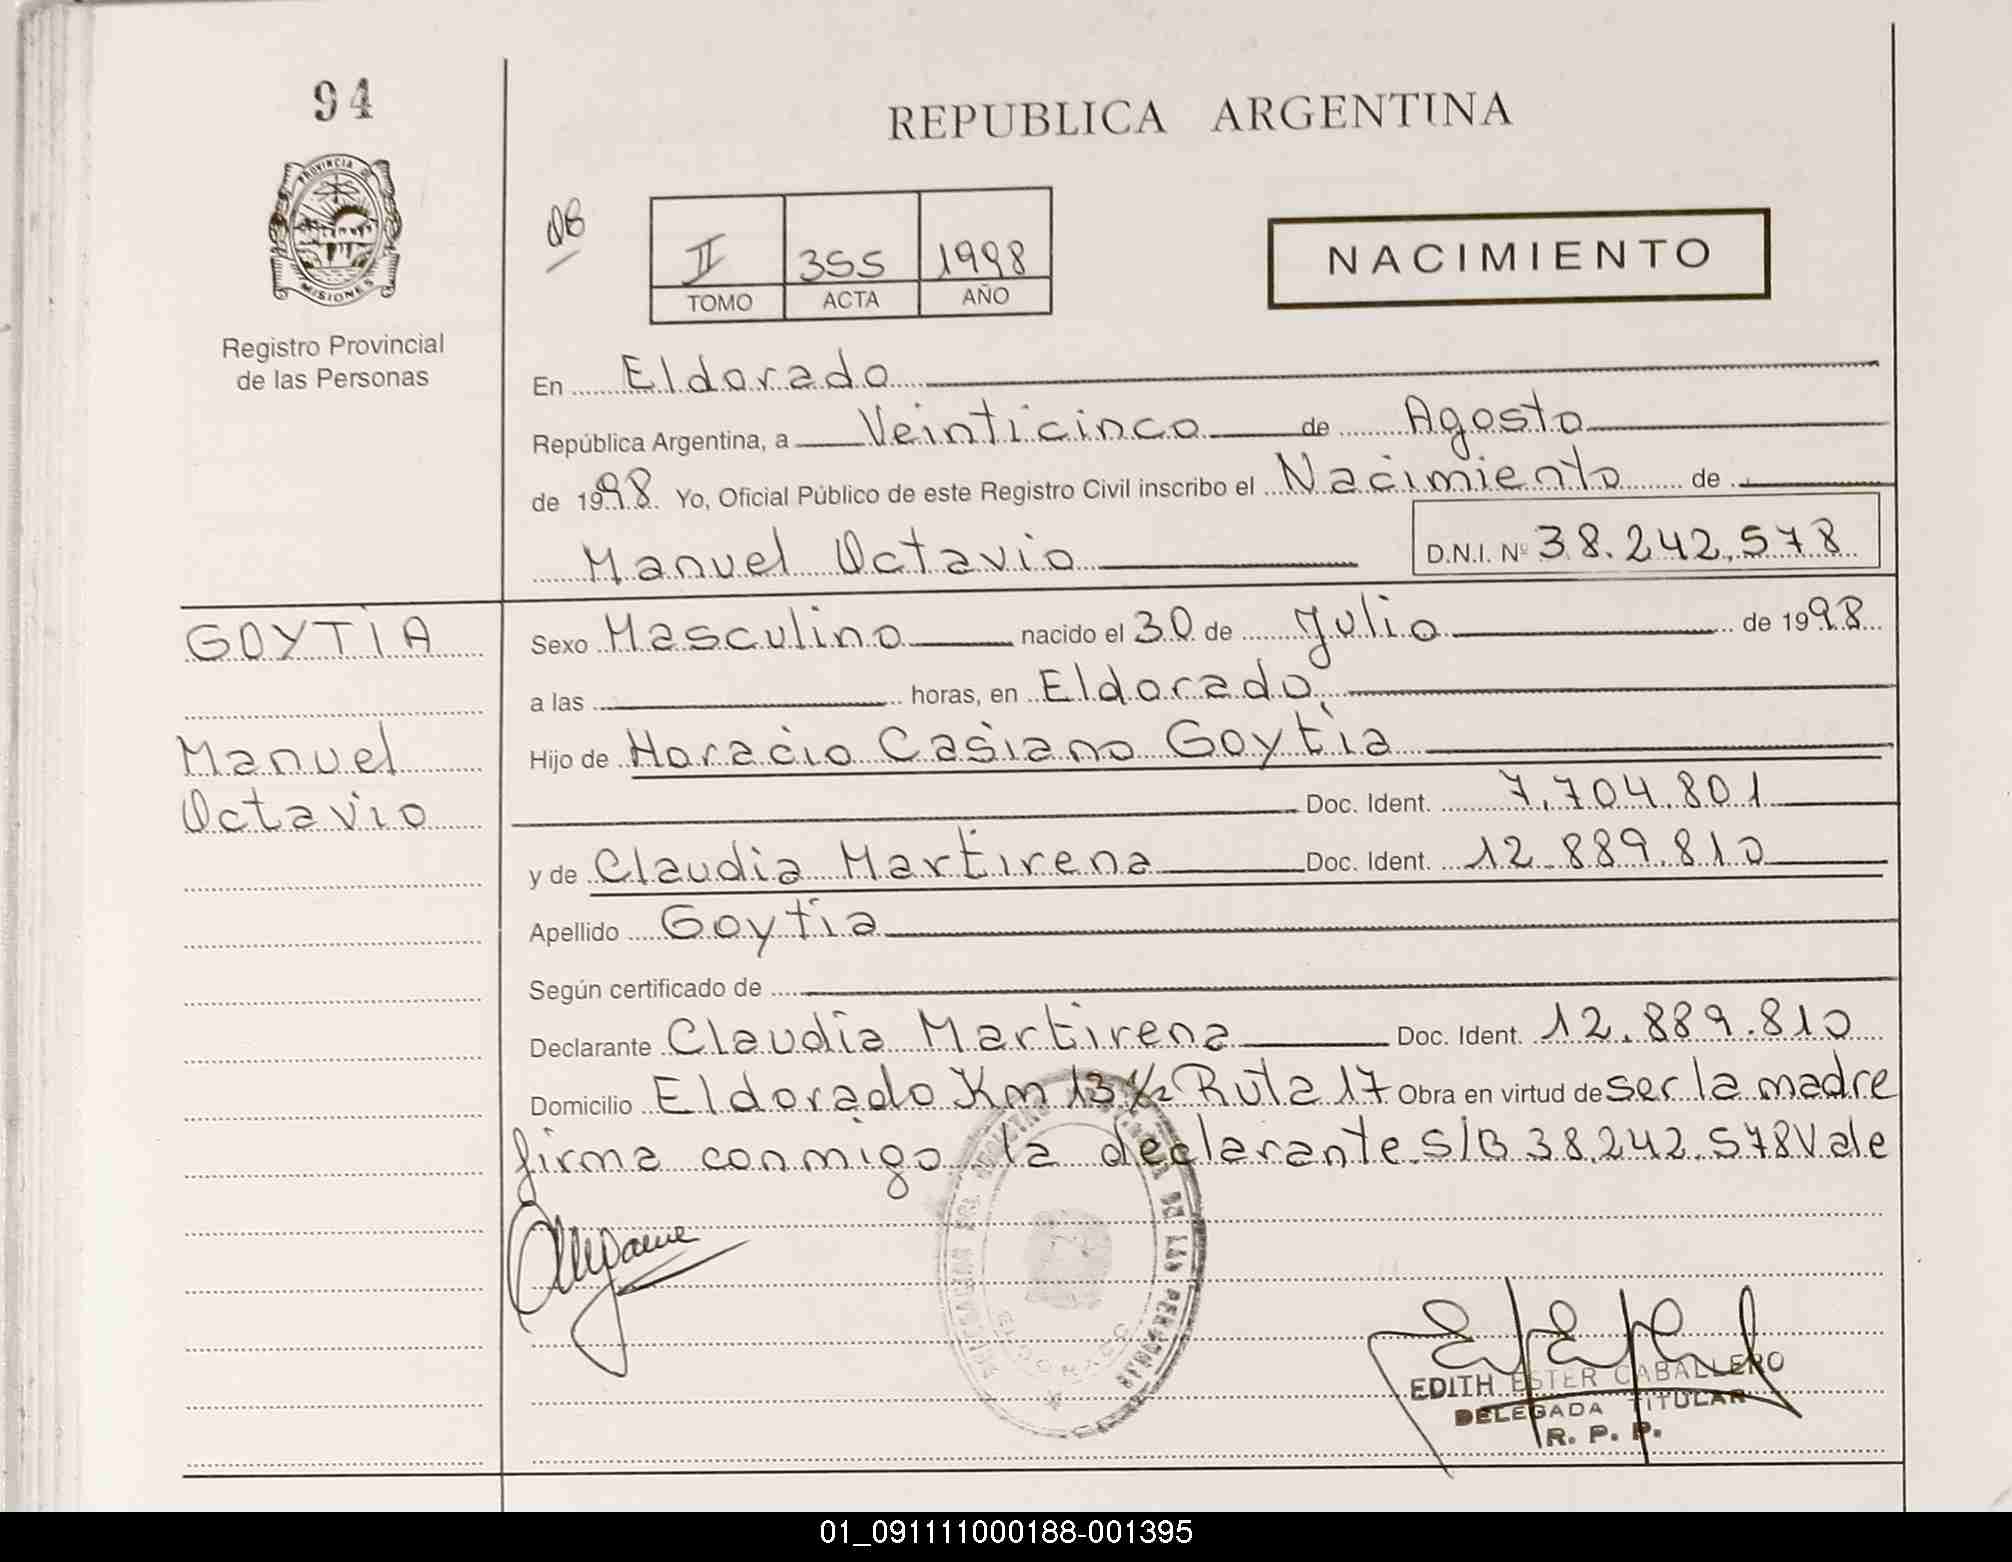 94
REPUBLICA ARGENTINA
PROVINCIA DE
MISIONES
Registro Provincial
de las Personas
II 355 1998
TOMO ACTA AÑO
NACIMIENTO
En Eldorado
República Argentina, a Veinticinco de Agosto
de 1998 Yo, Oficial Público de este Registro Civil inscribo el Nacimiento de
Manuel Octavio D.N.I. Nº 38.242.578
GOYTIA
Manuel
Octavio
Sexo Masculino nacido el 30 de Julio de 1998
a las horas, en Eldorado
Hijo de Horacio Casiano Goytia
Doc. Ident. 7.704.801
y de Claudia Martirena Doc. Ident. 12.889.810
Apellido Goytia
Según certificado de
Declarante Claudia Martirena Doc. Ident. 12.889.810
Domicilio Eldorado Km 13 1/2 Ruta 17 Obra en virtud de ser la madre
firma conmigo la declarante. S/B 38.242.578 Vale
DE LAS PERSONAS
ELDORADO
EDITH ESTER CABALLERO
DELEGADA TITULAR
R. P. P.
01_091111000188-001395